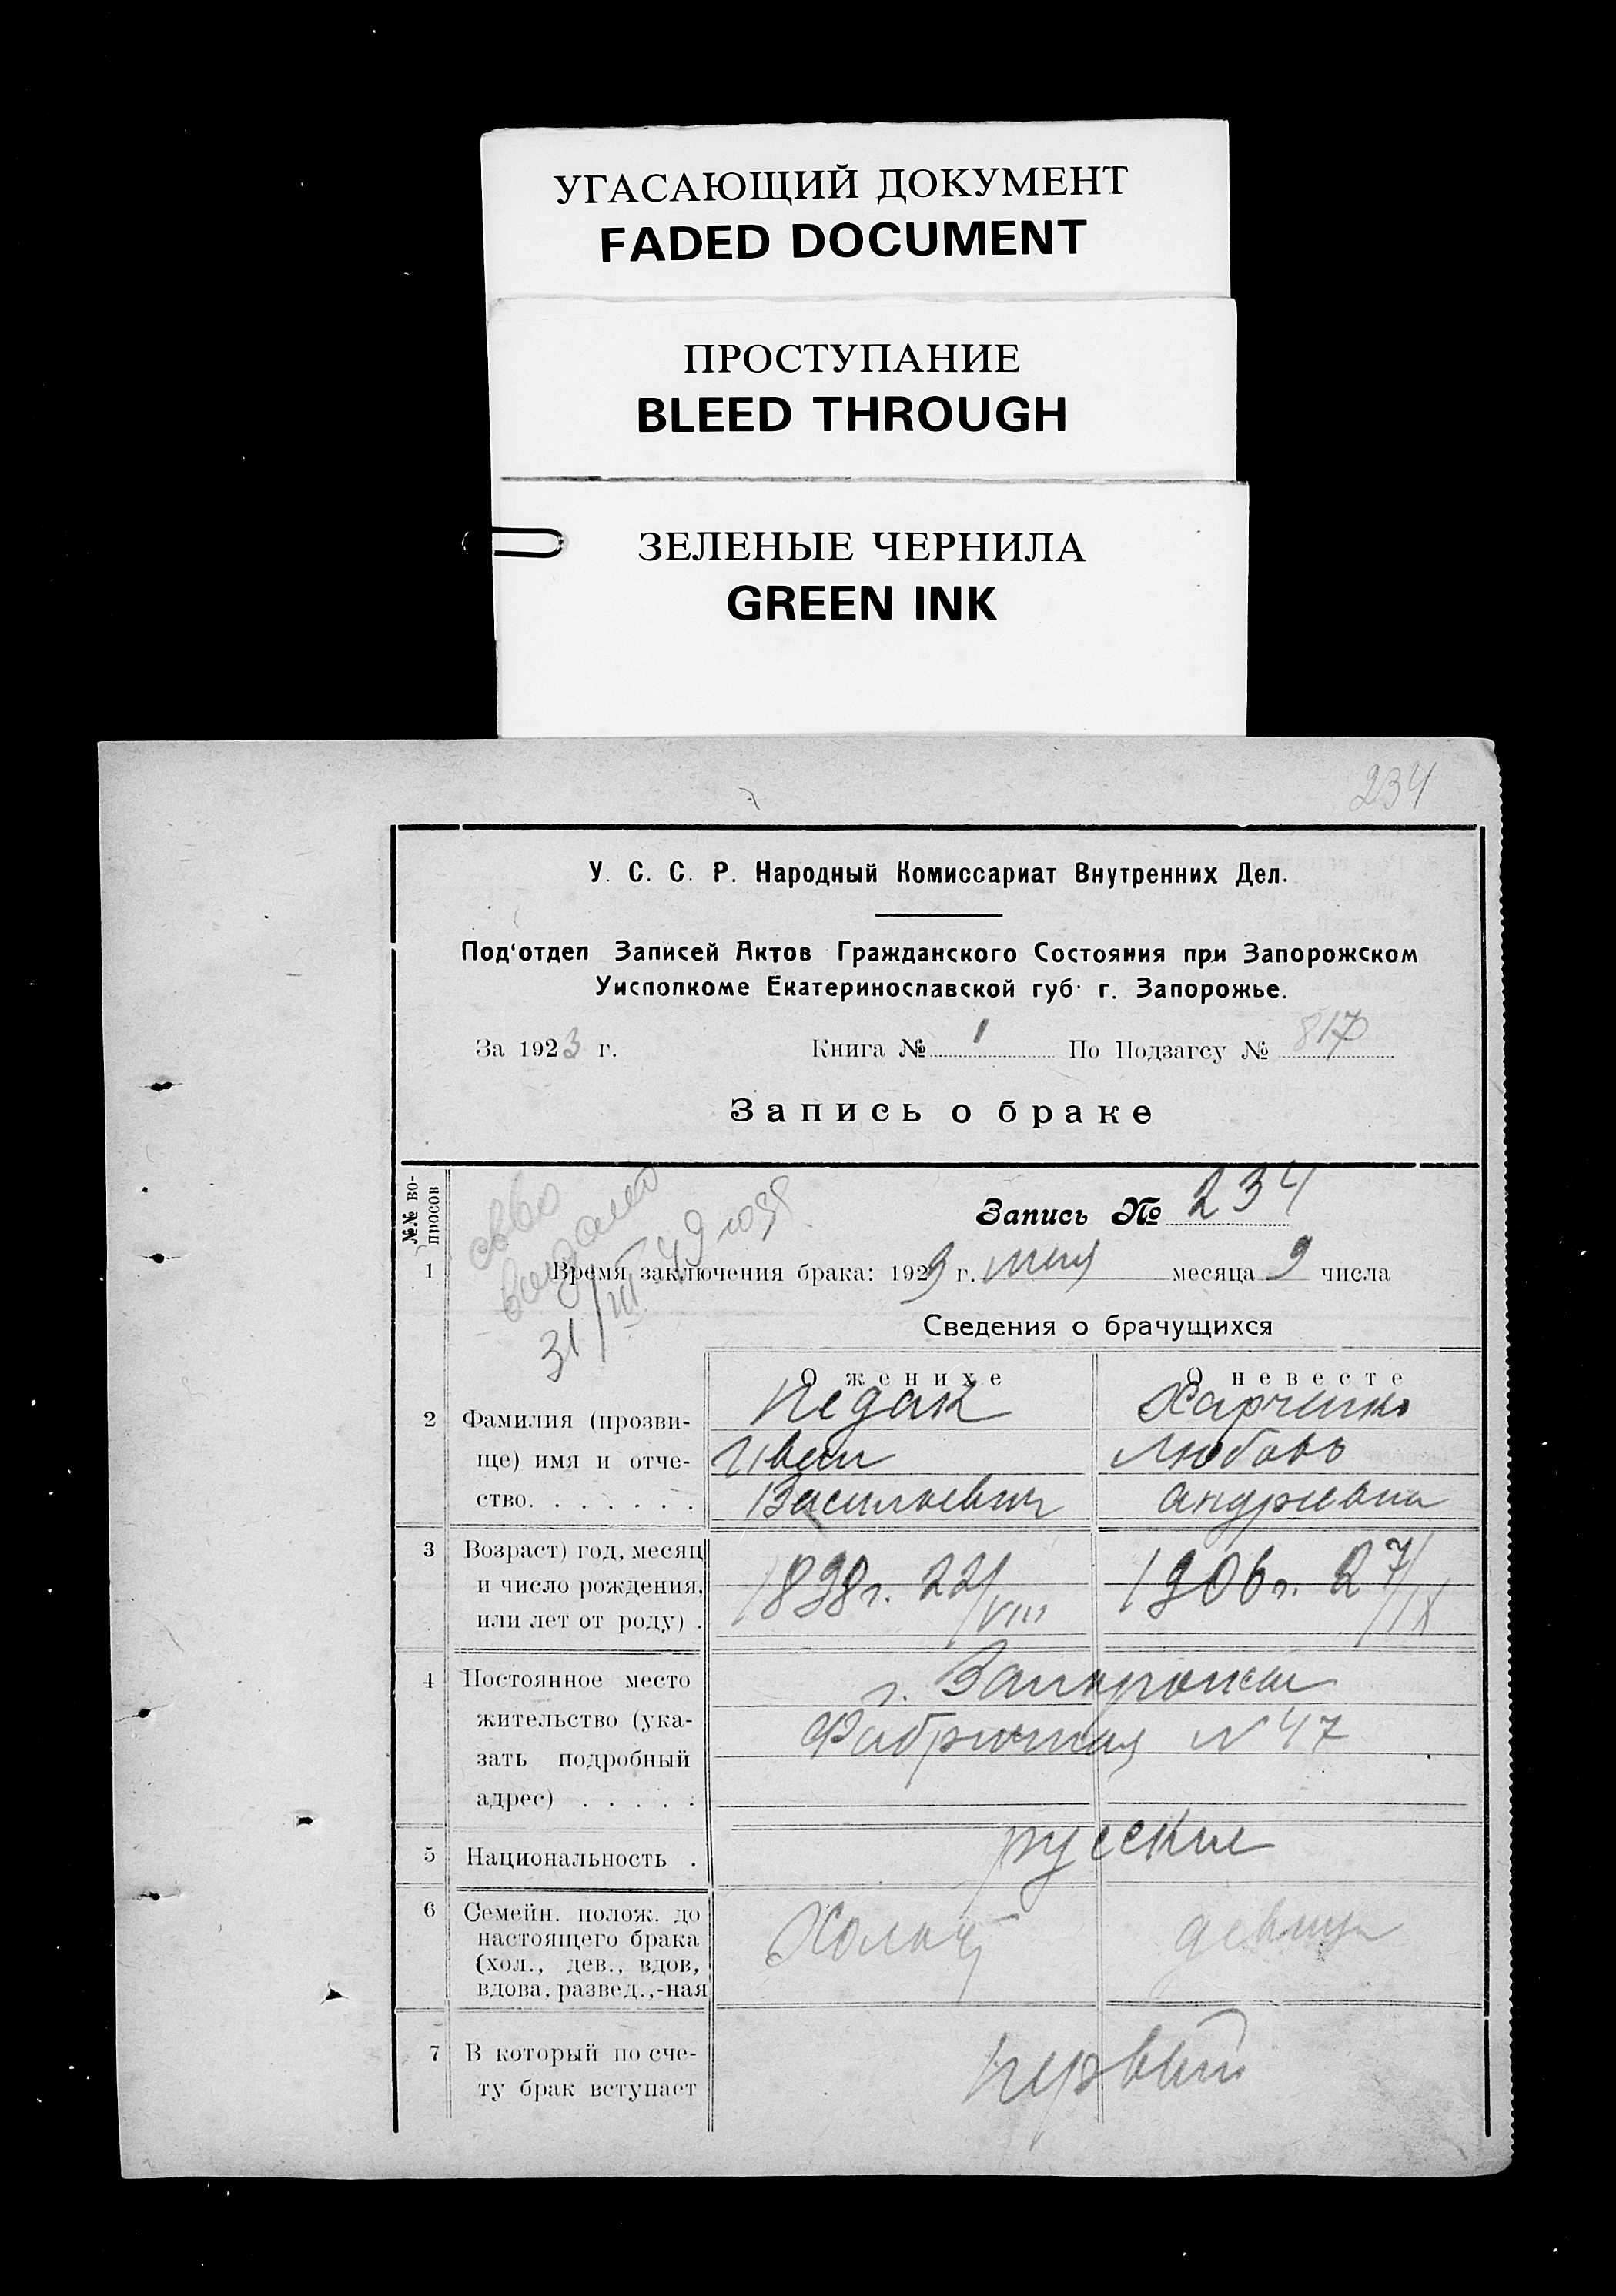 УГАСАЮЩИЙ ДОКУМЕНТ
FADED DOCUMENT
ПРОСТУПАНИЕ
BLEED THROUGH
ЗЕЛЕНЫЕ ЧЕРНИЛА
GREEN INK
234
У. С. С. Р. Народный Комиссариат Внутренних Дел.
Под'отдел Записей Актов Гражданского Состояния при Запорожском
Уисполкоме Екатеринославской губ. г. Запорожье.
За 1923 г. Книга № 1 По Подзагсу № 817
Запись о браке
№№ во-
просов
Запись № 234
св-во
выдано
31/III 49 года
1 Время заключения брака: 1923 г. мая месяца 9 числа
Сведения о брачущихся
О женихе О невесте
2 Фамилия (прозви- Недак Харченко
ще) имя и отче- Иван Любовь
ство. . . . . . . Васильевич Андриевна
3 Возраст) год, месяц
и число рождения, 1898 г. 22/VIII 1906 г. 27/IX
или лет от роду) .
4 Постоянное место г. Запорожье
жительство (ука- Фабричная N 47
зать подробный
адрес) . . . . .
5 Национальность . русские
6 Семейн. полож. до
настоящего брака Холост девица
(хол., дев., вдов,
вдова, развед.,-ная
7 В который по сче- первый
ту брак вступает